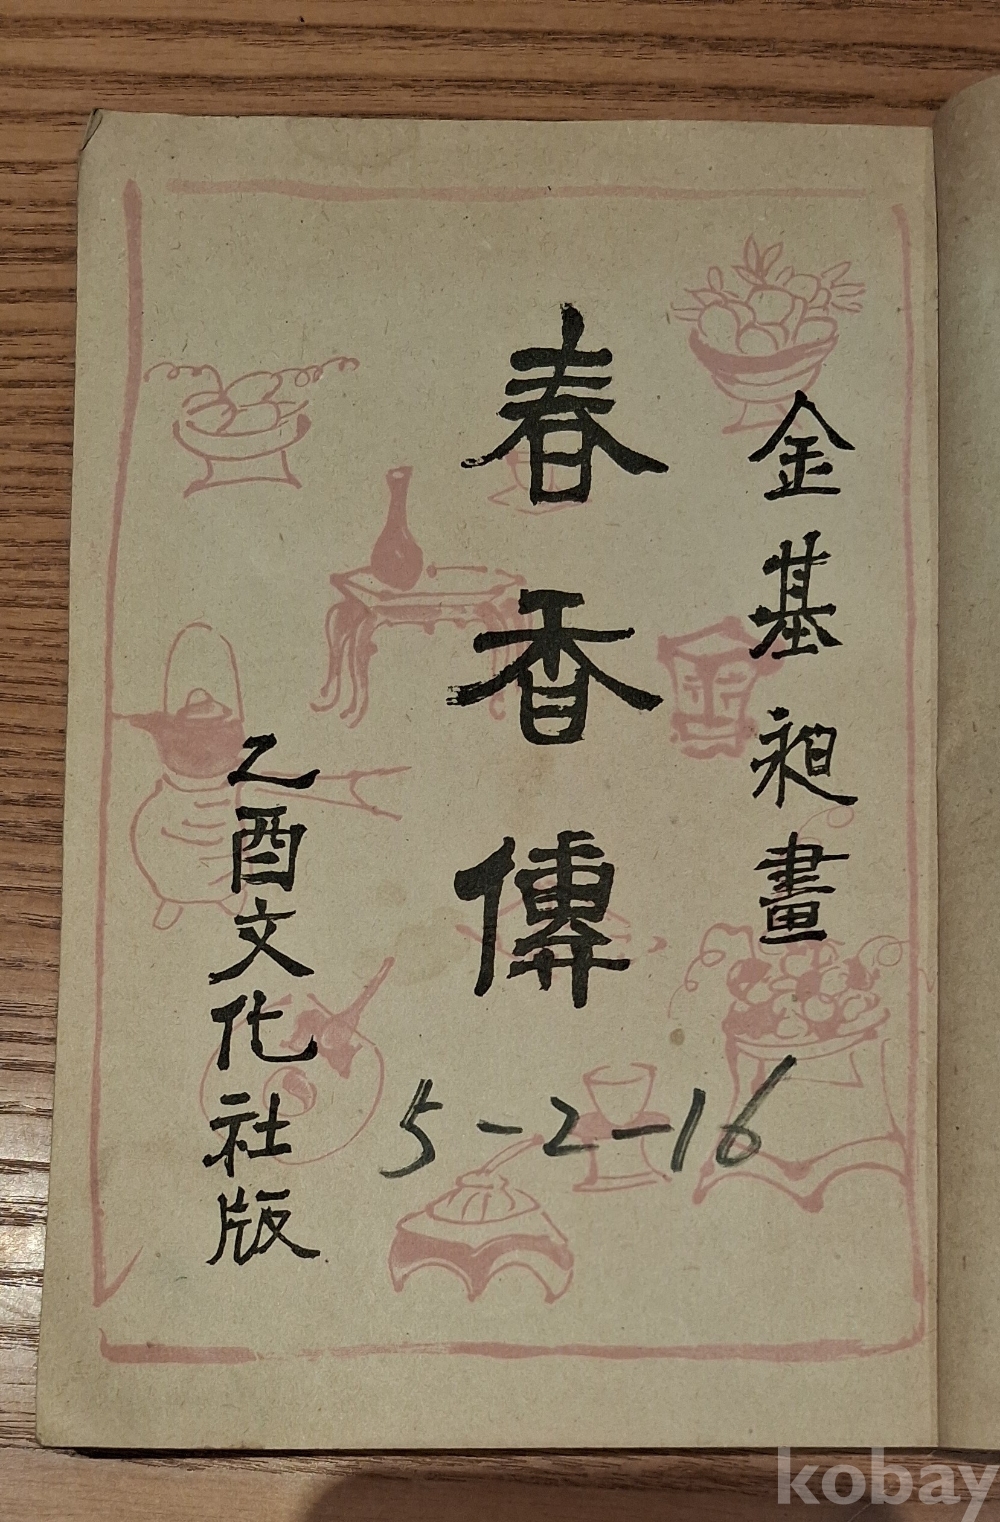 金基昶畫
春香傳
乙酉文化社版
5-2-16
kobay